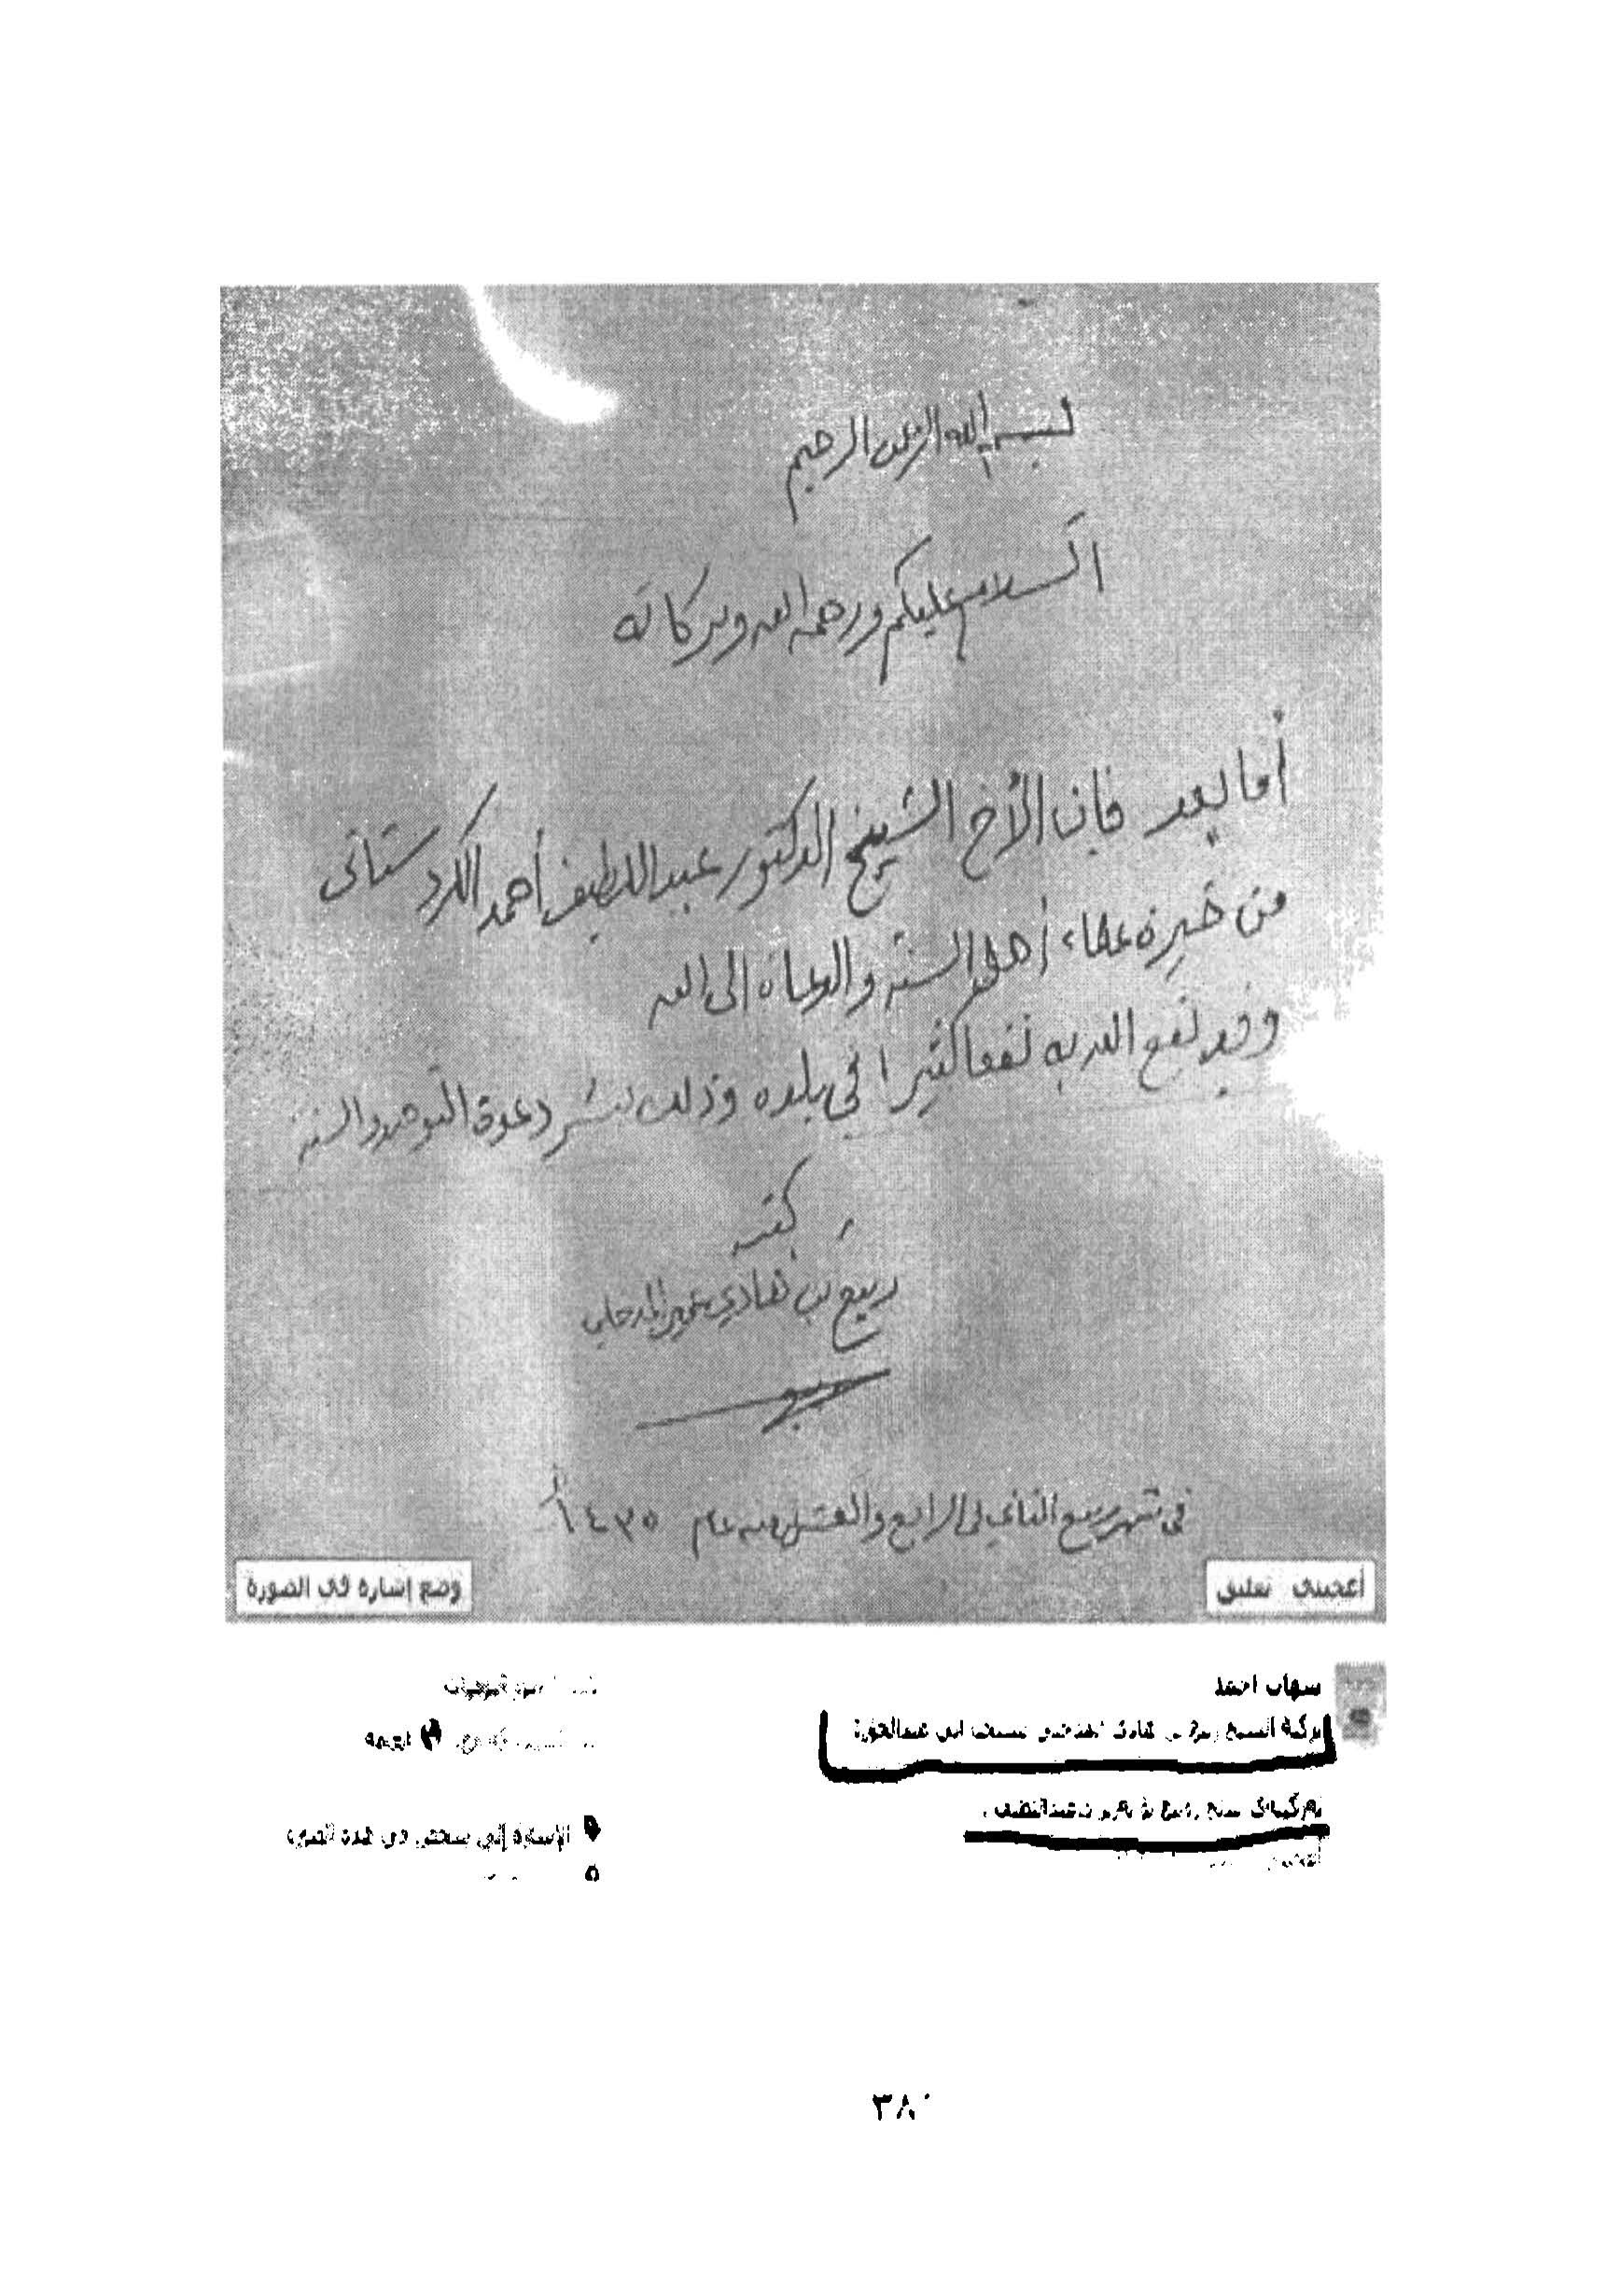 بسم الله الرحمن الرحيم
السلام عليكم ورحمة الله وبركاته
أما بعد فإن الأخ الشيخ الدكتور عبد اللطيف أحمد الكردستاني
من خيرة علماء أهل السنة والدعاة إلى الله
وقد نفع الله به نفعا كثيرا في بلده وذلك بنشر دعوة التوحيد والسنة
كتبه
ربيع بن هادي عمير المدخلي
ربيع
في شهر ربيع الثاني في الرابع والعشرين منه عام ١٤٣٥
أعجبني تعليق
وضع إشارة في الصورة
شهاب احمد
تزكية الشيخ ربيع بن هادي
الإشارة إلى شخص في هذه الصورة
٣٨٠